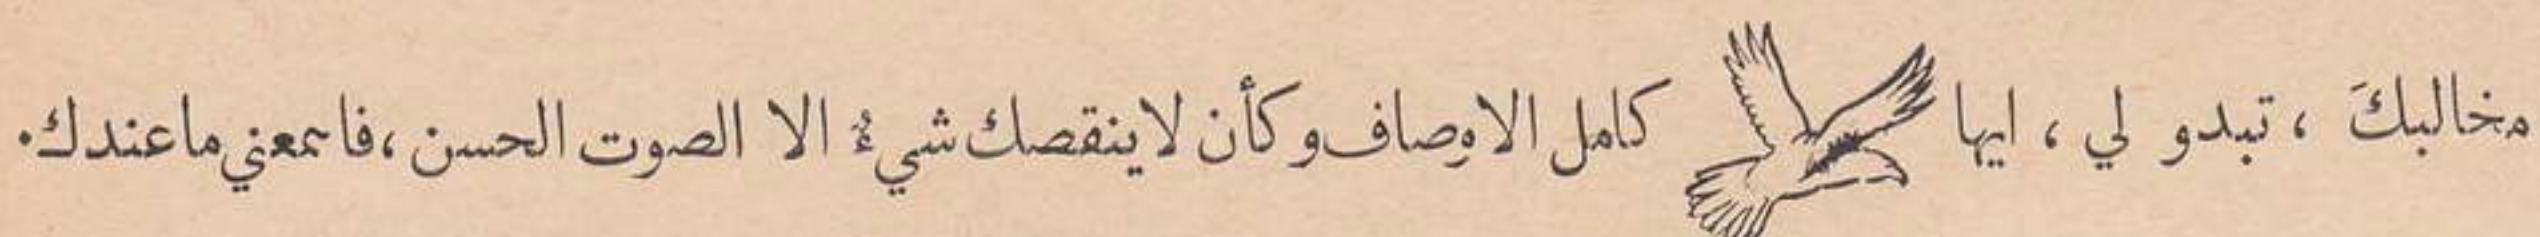 مخالبكَ ، تبدو لي ، ايها كامل الاوصاف وكأن لاينقصك شيءٌ الا الصوت الحسن ،فاسمعني ماعندك.